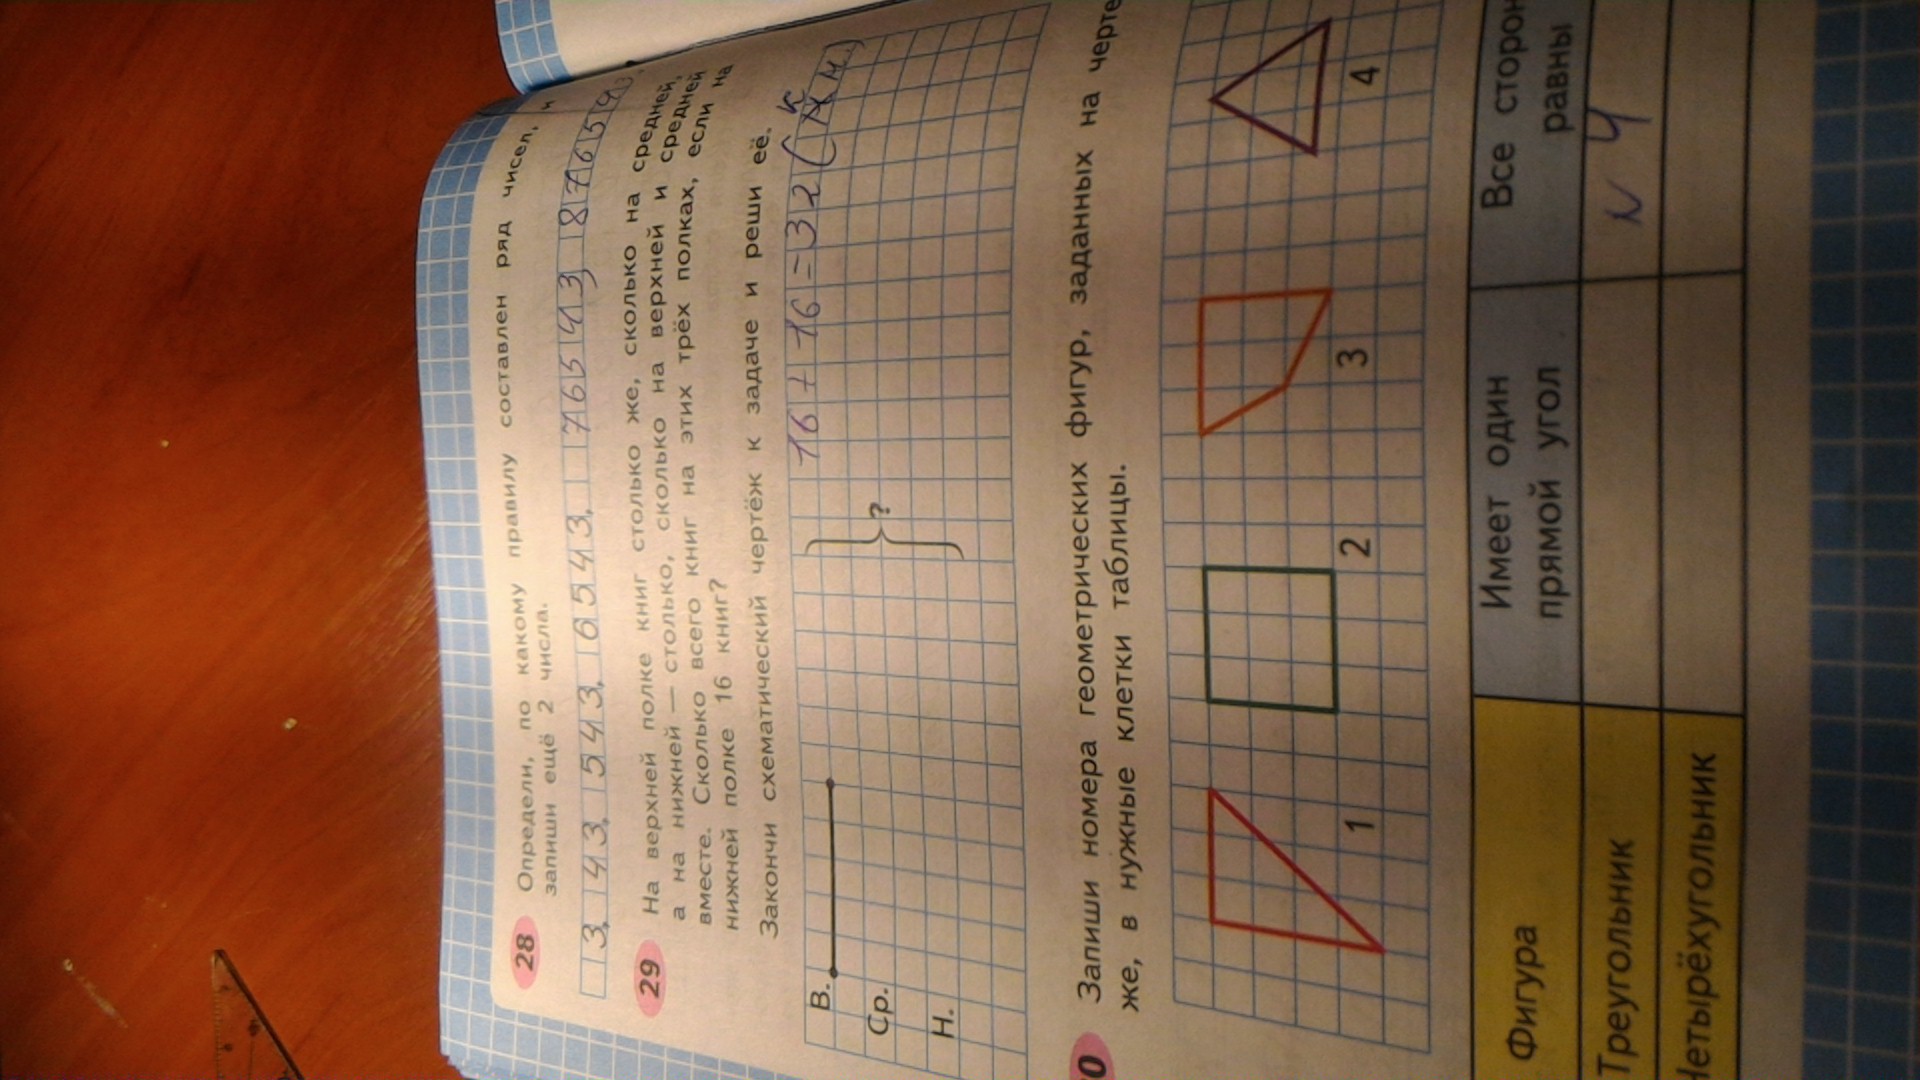 28 Определи, по какому правилу составлен ряд чисел, и
запиши ещё 2 числа.
3, 43, 543, 6543, 76543 876543,
29 На верхней полке книг столько же, сколько на средней,
а на нижней — столько, сколько на верхней и средней
вместе. Сколько всего книг на этих трёх полках, если на
нижней полке 16 книг?
Закончи схематический чертёж к задаче и реши её.
В.
16 + 16 = 32 (к
Ср.
?
Н.
0 Запиши номера геометрических фигур, заданных на черте
же, в нужные клетки таблицы.
1 2 3 4
Фигура Имеет один прямой угол Все сторон равны
Треугольник N 4
Четырёхугольник